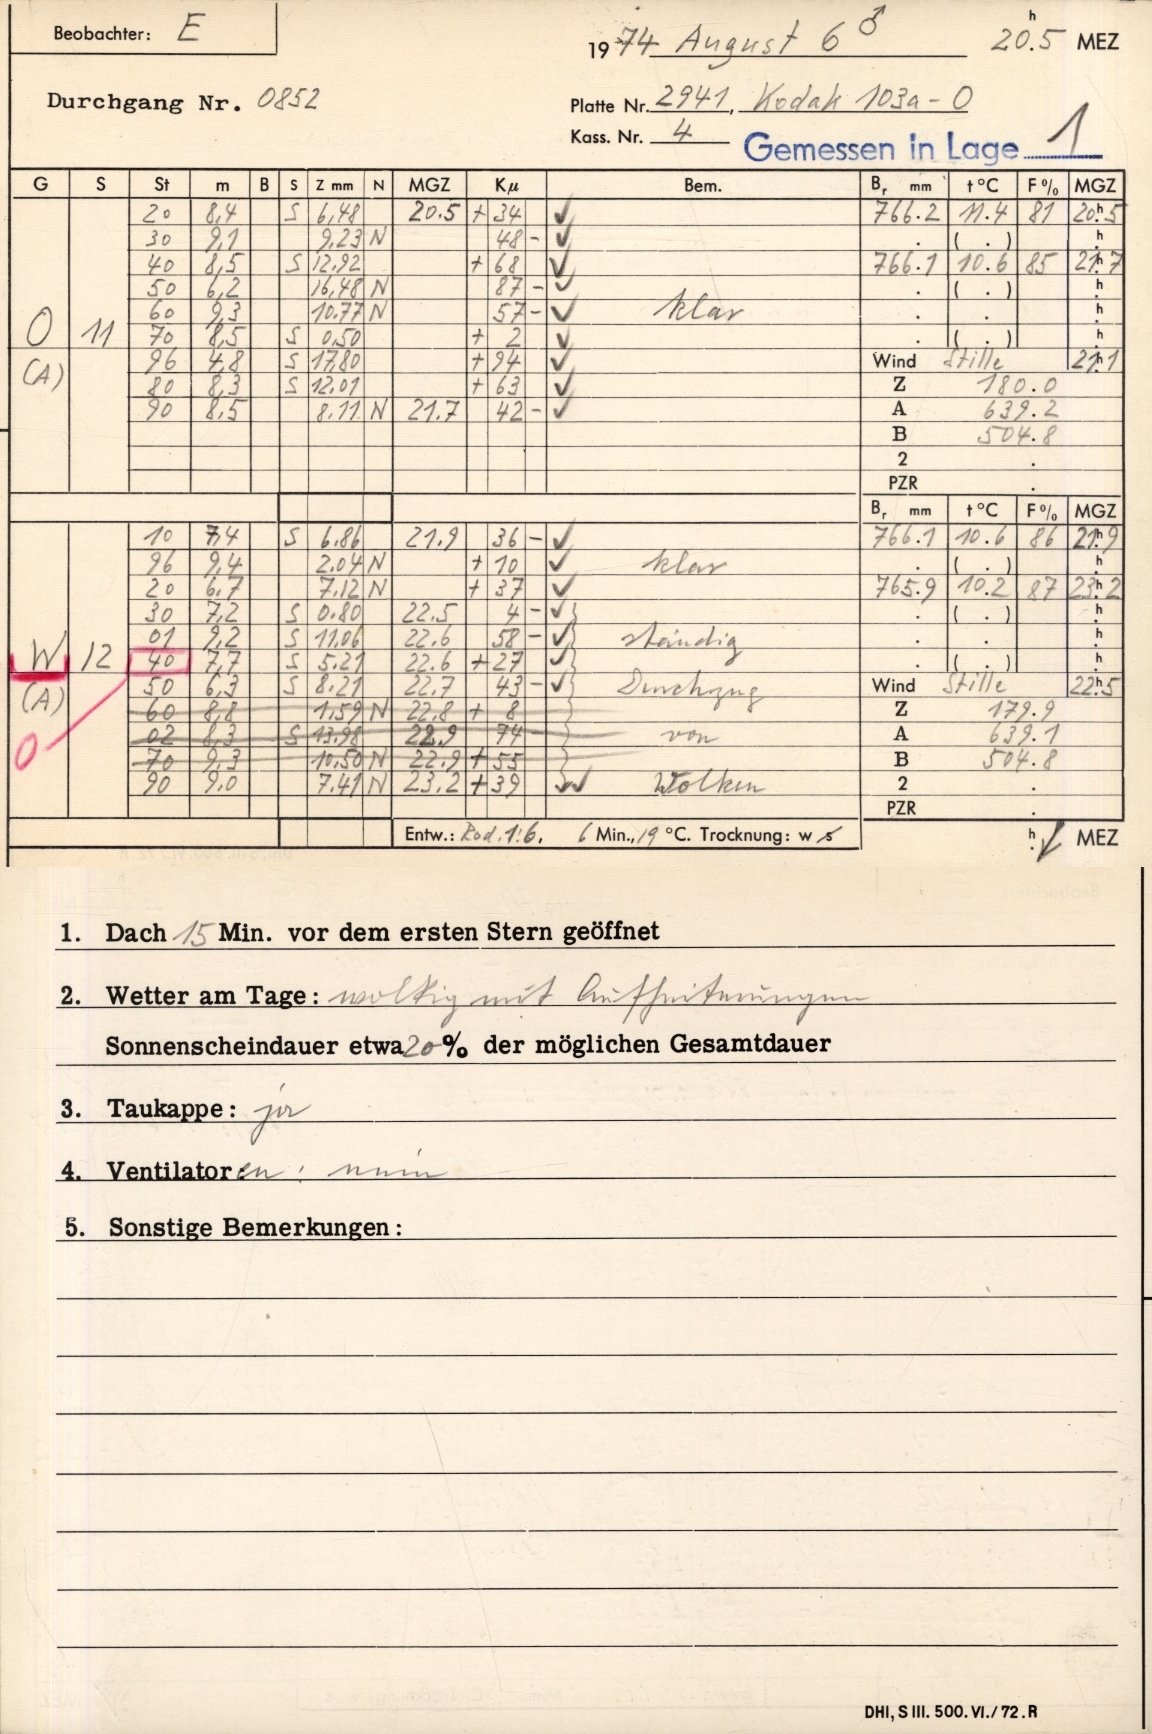 Beobachter: E
1974 August 6 ♂ 20.5 h MEZ
Durchgang Nr. 0852
Platte Nr. 2941, Kodak 103a-O
Kass. Nr. 4
Gemessen in Lage 1
G S St m B S Z mm N MGZ Kμ Bem. Br mm t °C F % MGZ
20 8,4 S 6,48 20.5 + 34 ✓ 766.2 11.4 81 20h5
30 9,1 9,23 N 48 - ✓ . ( . ) h
40 8,5 S 12,92 + 68 ✓ 766.1 10.6 85 21h7
50 6,2 16,48 N 87 - ✓ . ( . ) h
60 9,3 10,77 N 57 - ✓ klar . . h
O 11 70 8,5 S 0,50 + 2 ✓ . ( . ) h
(A) 96 4,8 S 17,80 + 94 ✓ Wind Stille 21h1
80 8,3 S 12,01 + 63 ✓ Z 180.0
90 8,5 8,11 N 21.7 42 - ✓ A 639.2
B 504.8
2 .
PZR .
Br mm t °C F % MGZ
10 7,4 S 6.86 21.9 36 - ✓ 766.1 10.6 86 21h9
96 9,4 2.04 N + 10 ✓ klar . ( . ) h
20 6.7 7.12 N + 37 ✓ 765.9 10.2 87 23h2
30 7,2 S 0.80 22.5 4 - ✓ . ( . ) h
01 9,2 S 11,06 22.6 58 - ✓ ständig . . h
W 12 40 7,7 S 5.21 22.6 + 27 ✓ . ( . ) h
(A) 50 6,3 S 8.21 22.7 43 - ✓ Durchzug Wind Stille 22h5
60 8,8 1.59 N 22.8 + 8 Z 179.9
O 02 8,3 S 13.98 22.9 74 - von A 639.1
70 9,3 10.50 N 22.9 + 55 B 504.8
90 9,0 7.41 N 23.2 + 39 ✓✓ Wolken 2 .
PZR .
Entw.: Rod. 1:6, 6 Min., 19 °C. Trocknung: w s h ✓ MEZ
1. Dach 15 Min. vor dem ersten Stern geöffnet
2. Wetter am Tage: wolkig mit Aufheiterungen
Sonnenscheindauer etwa 20 % der möglichen Gesamtdauer
3. Taukappe: ja
4. Ventilatoren: nein
5. Sonstige Bemerkungen:
DHI, S III. 500. VI./72. R